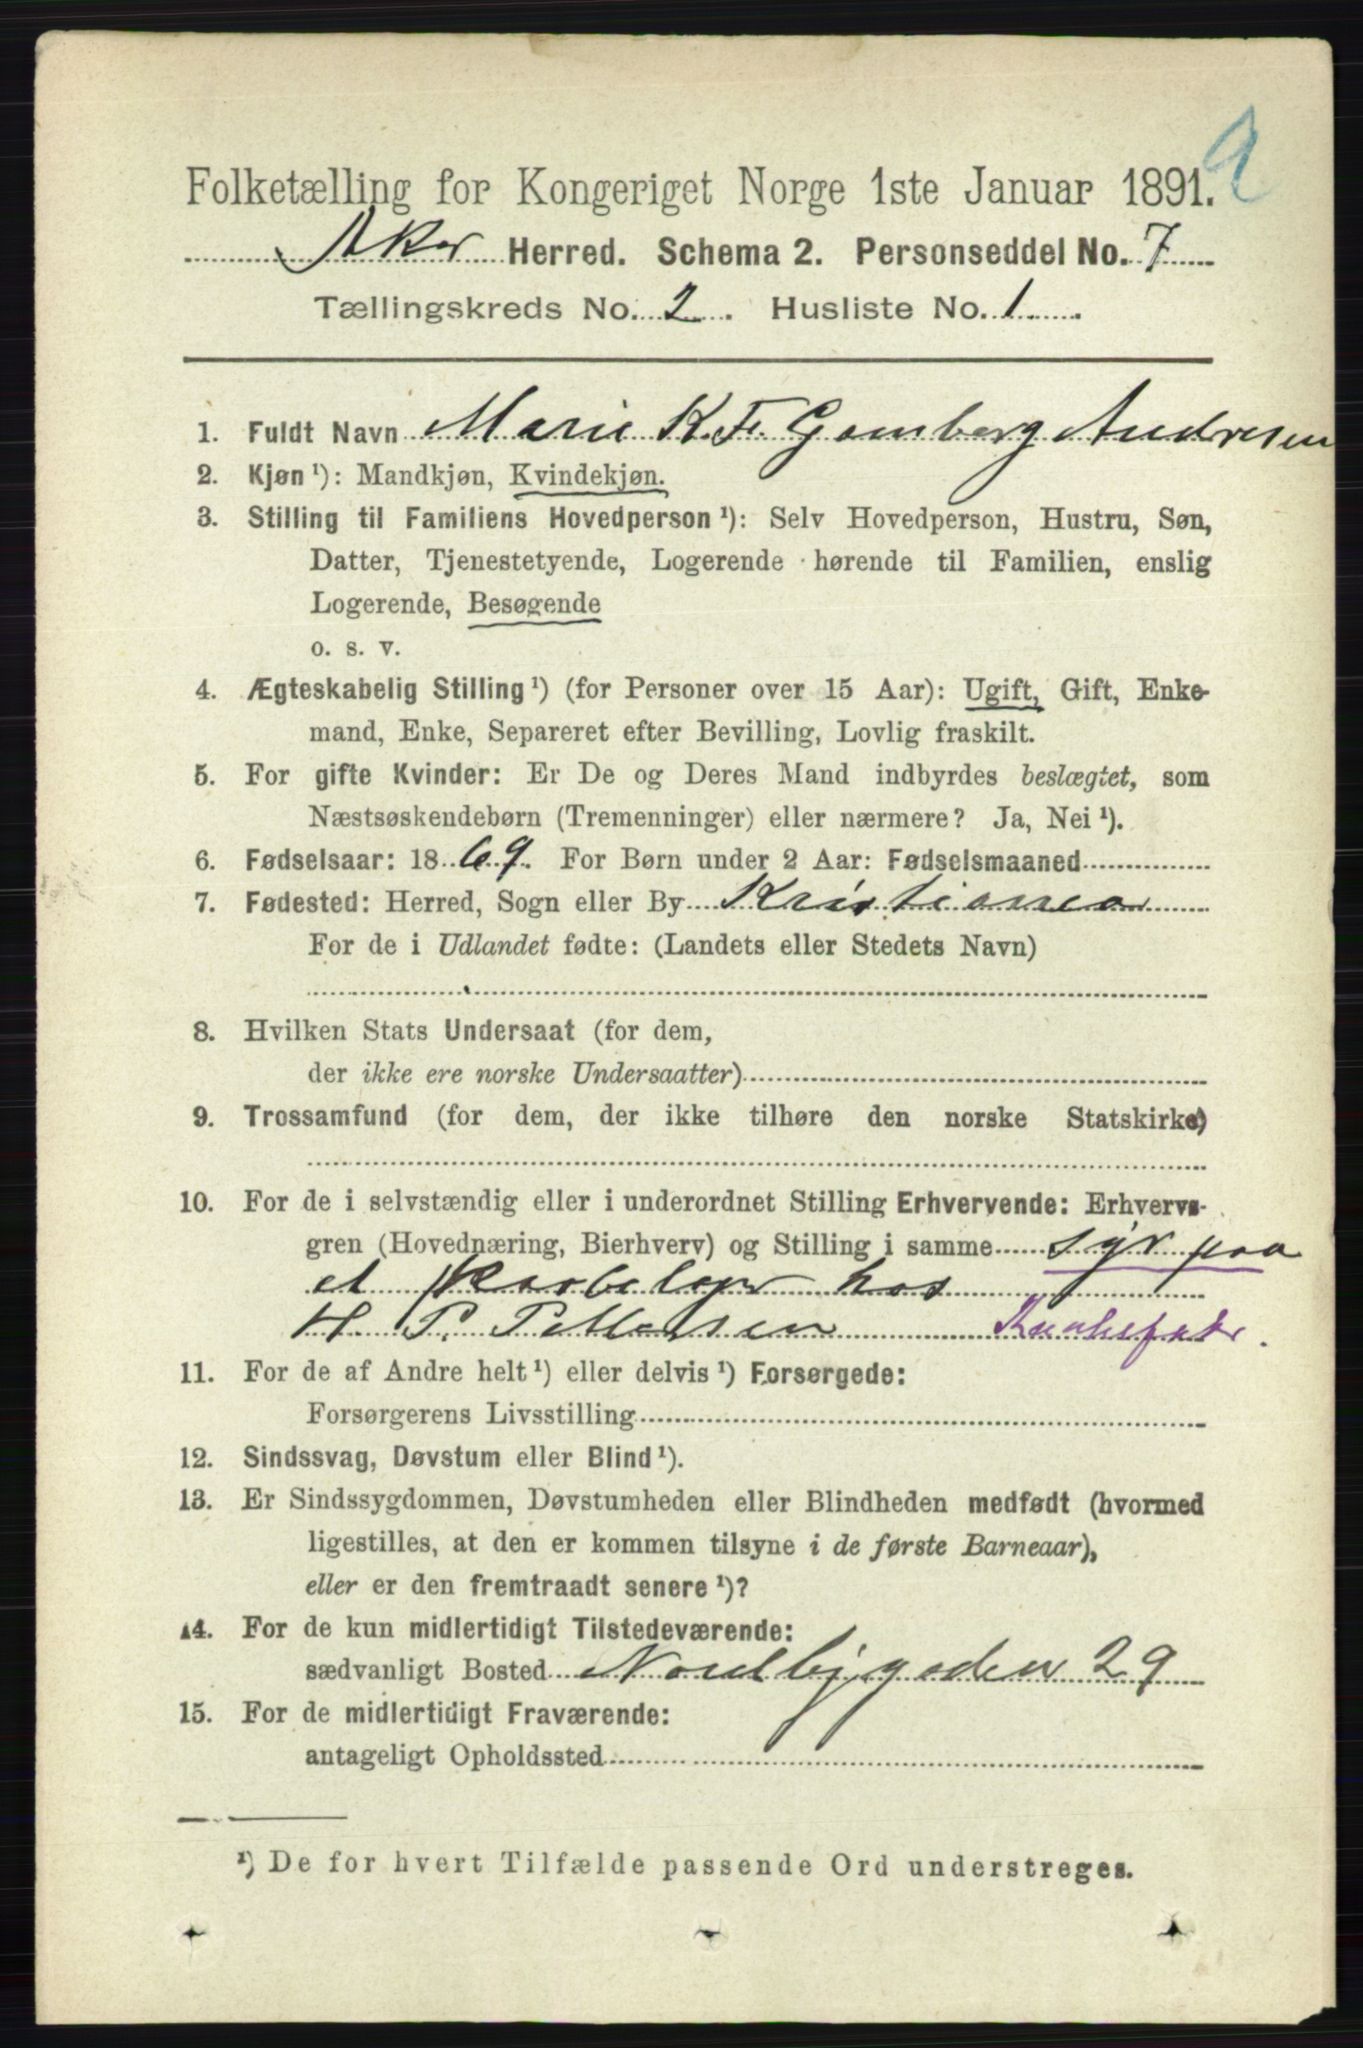 9
Folketælling for Kongeriget Norge 1ste Januar 1891.
Aker Herred. Schema 2. Personseddel No. 7
Tællingskreds No. 2. Husliste No. 1.
1. Fuldt Navn Marie K. F. Gamborg Andresen
2. Kjøn ¹): Mandkjøn, Kvindekjøn.
3. Stilling til Familiens Hovedperson ¹): Selv Hovedperson, Hustru, Søn,
Datter, Tjenestetyende, Logerende hørende til Familien, enslig
Logerende, Besøgende
o. s. v.
4. Ægteskabelig Stilling ¹) (for Personer over 15 Aar): Ugift, Gift, Enke-
mand, Enke, Separeret efter Bevilling, Lovlig fraskilt.
5. For gifte Kvinder: Er De og Deres Mand indbyrdes beslægtet, som
Næstsøskendebørn (Tremenninger) eller nærmere? Ja, Nei ¹).
6. Fødselsaar: 1869. For Børn under 2 Aar: Fødselsmaaned
7. Fødested: Herred, Sogn eller By Kristiania
For de i Udlandet fødte: (Landets eller Stedets Navn)
8. Hvilken Stats Undersaat (for dem,
der ikke ere norske Undersaatter)
9. Trossamfund (for dem, der ikke tilhøre den norske Statskirke)
10. For de i selvstændig eller i underordnet Stilling Erhvervende: Erhvervs-
gren (Hovednæring, Bierhverv) og Stilling i samme syr paa
et hos
H. P. Pettersen
11. For de af Andre helt ¹) eller delvis ¹) Forsørgede:
Forsørgerens Livsstilling
12. Sindssvag, Døvstum eller Blind ¹).
13. Er Sindssygdommen, Døvstumheden eller Blindheden medfødt (hvormed
ligestilles, at den er kommen tilsyne i de første Barneaar),
eller er den fremtraadt senere ¹)?
14. For de kun midlertidigt Tilstedeværende:
sædvanligt Bosted Nordbygaden 29
15. For de midlertidigt Fraværende:
antageligt Opholdssted
¹) De for hvert Tilfælde passende Ord understreges.